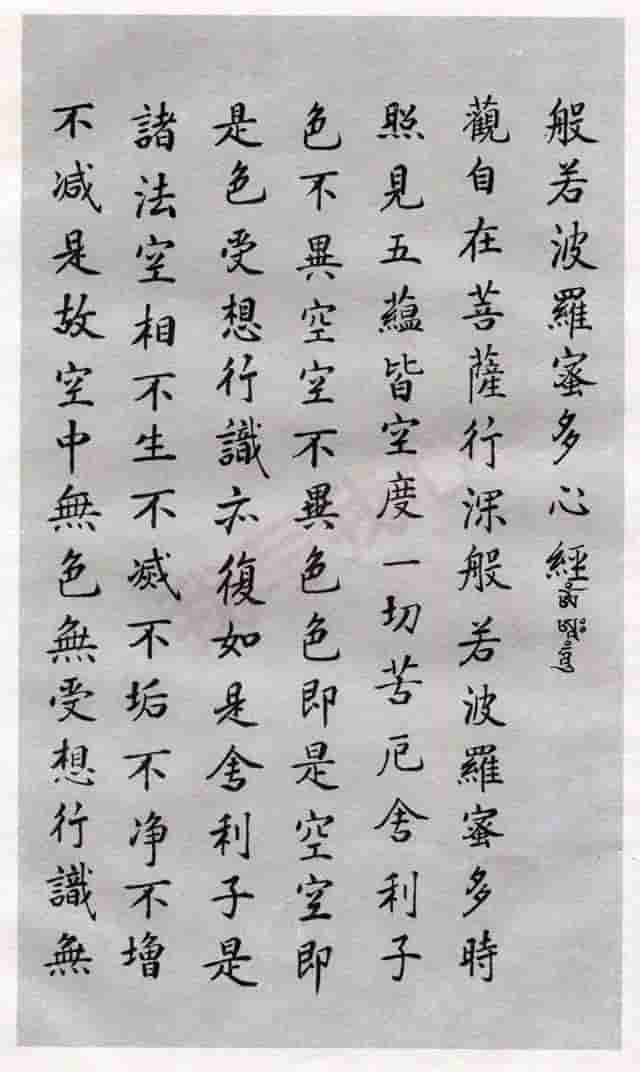 般若波羅蜜多心經
觀自在菩薩行深般若波羅蜜多時
照見五蘊皆空度一切苦厄舍利子
色不異空空不異色色即是空空即
是色受想行識亦復如是舍利子是
諸法空相不生不滅不垢不净不增
不減是故空中無色無受想行識無